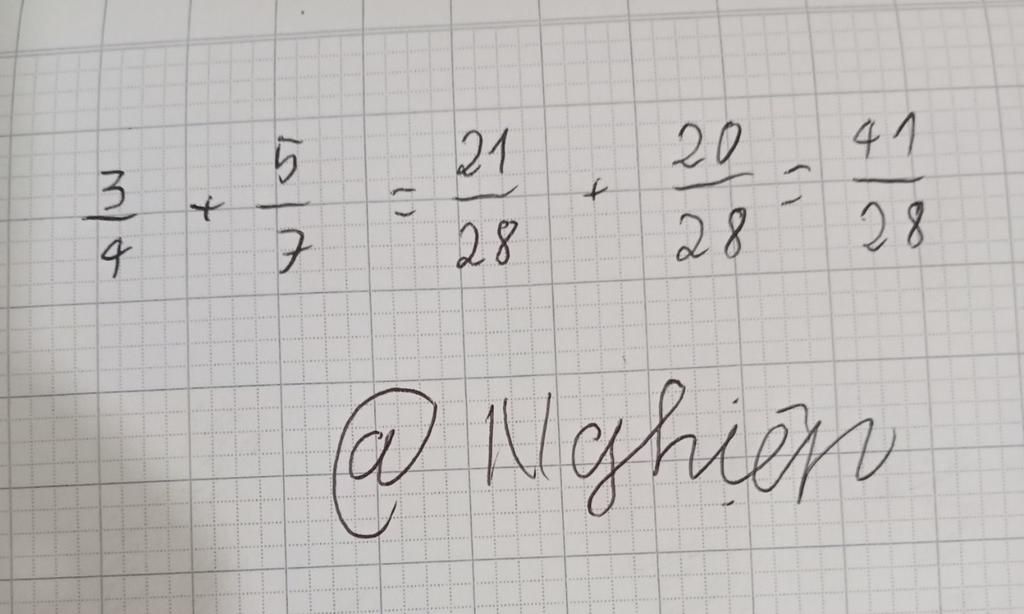 3/4 + 5/7 = 21/28 + 20/28 = 41/28
@ Nghiện